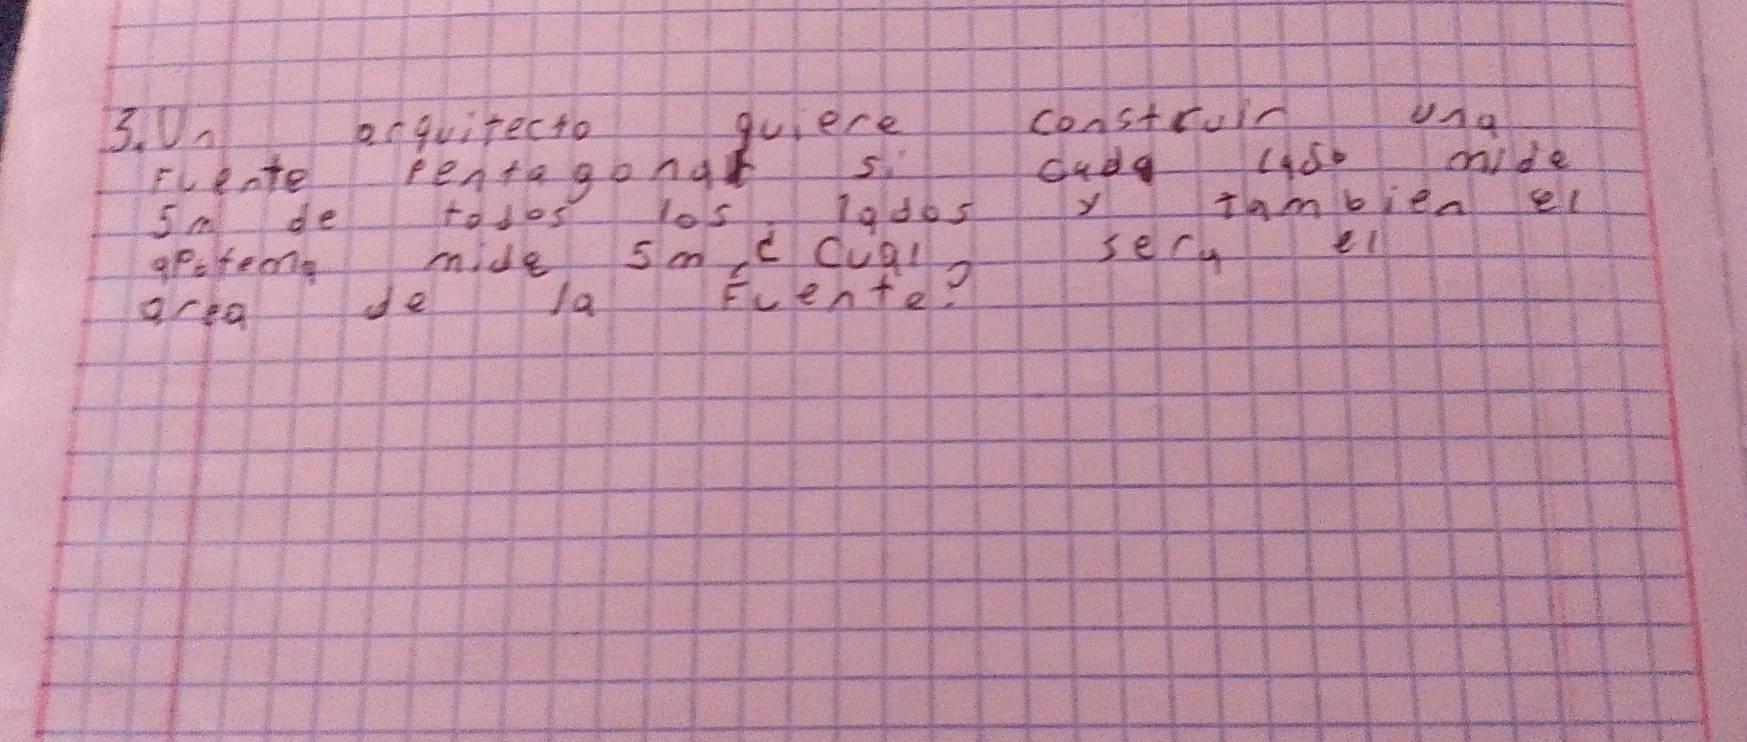 3. Un arquitecto quiere construir una
Fuente Pentagonal si cada lado mide
5m de todos los lados y tambien el
apotema mide 5m ¿Cual sera el
area de la Fuente?